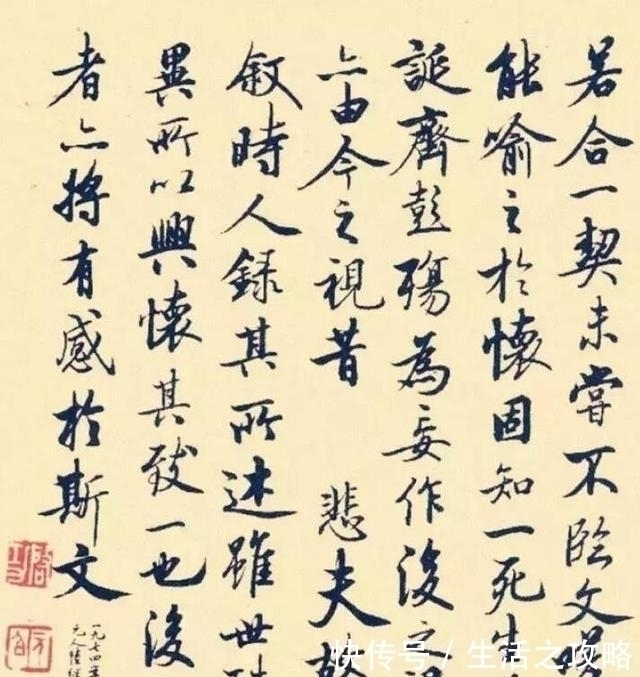 若合一契未嘗不臨文嗟
能喻之於懷固知一死生
誕齊彭殤為妄作後之視
亦由今之視昔 悲夫故
叙時人錄其所述雖世殊
異所以興懷其致一也後
者亦將有感於斯文
一九七四年
元人陸繼
快传号 / 生活之攻略